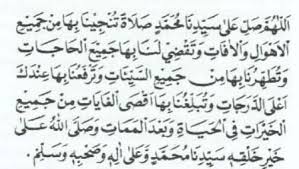 اَللّٰهُمَّ صَلِّ عَلٰى سَيِّدِنَا مُحَمَّدٍ صَلَاةً تُنْجِيْنَا بِهَا مِنْ جَمِيْعِ
الْاَهْوَالِ وَالْاٰفَاتِ وَتَقْضِيْ لَنَا بِهَا جَمِيْعَ الْحَاجَاتِ
وَتُطَهِّرُنَا بِهَا مِنْ جَمِيْعِ السَّيِّئَاتِ وَتَرْفَعُنَا بِهَا عِنْدَكَ
اَعْلَى الدَّرَجَاتِ وَتُبَلِّغُنَا بِهَا اَقْصَى الْغَايَاتِ مِنْ جَمِيْعِ
الْخَيْرَاتِ فِي الْحَيَاةِ وَبَعْدَ الْمَمَاتِ وَصَلَّى اللّٰهُ عَلٰى
خَيْرِ خَلْقِهِ سَيِّدِنَا مُحَمَّدٍ وَعَلٰى اٰلِهِ وَصَحْبِهِ وَسَلِّمْ.